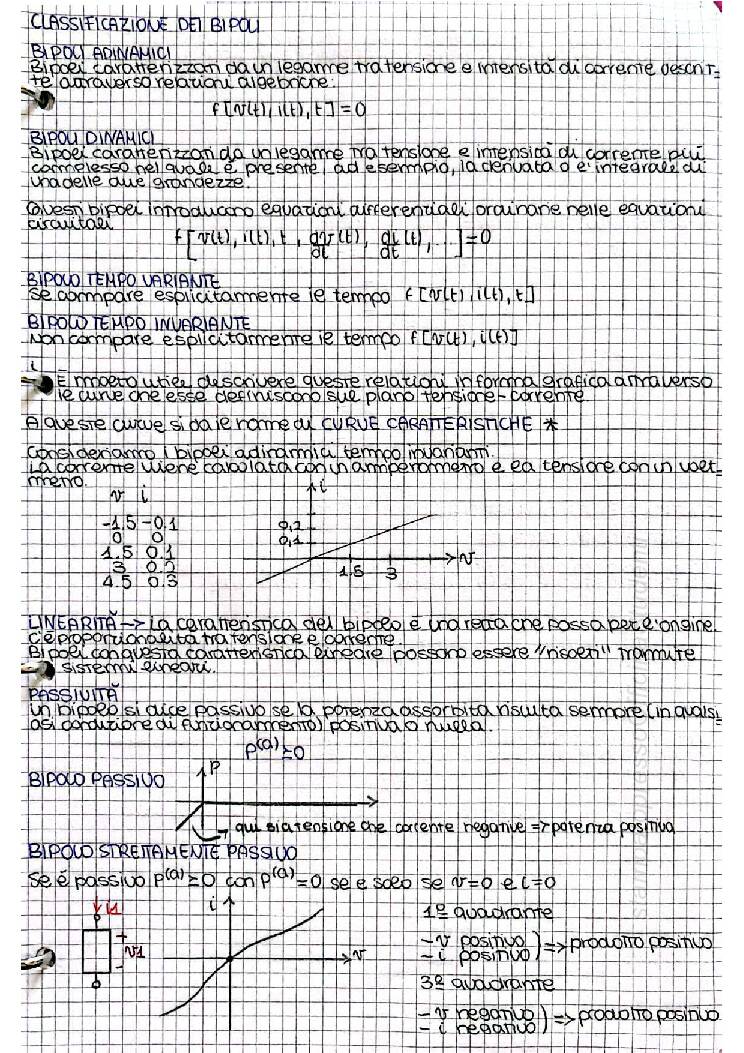 CLASSIFICAZIONE DEI BIPOLI
BIPOLI ADINAMICI
Bipoli caratterizzati da un legame tra tensione e intensità di corrente descrit-
te attraverso relazioni algebriche:
f[v(t), i(t), t] = 0
BIPOLI DINAMICI
Bipoli caratterizzati da un legame tra tensione e intensità di corrente più
complesso nel quale è presente, ad esempio, la derivata o l'integrale di
una delle due grandezze.
Questi bipoli introducono equazioni differenziali ordinarie nelle equazioni
circuitali
f[v(t), i(t), t, dv/dt (t), di/dt (t), ...] = 0
BIPOLO TEMPO VARIANTE
Se compare esplicitamente il tempo f[v(t), i(t), t]
BIPOLO TEMPO INVARIANTE
Non compare esplicitamente il tempo f[v(t), i(t)]
È molto utile descrivere queste relazioni in forma grafica attraverso
le curve che esse definiscono sul piano tensione-corrente
A queste curve si da il nome di CURVE CARATTERISTICHE *
Consideriamo i bipoli adinamici tempo invarianti.
La corrente viene calcolata con un amperometro e la tensione con un volt-
metro.
v i
-1,5 -0,1
0 0
1.5 0.1
3 0.2
4.5 0.3
i
0,2
0,1
v
1,5 3
LINEARITÀ -> La caratteristica del bipolo è una retta che passa per l'origine.
C'è proporzionalità tra tensione e corrente.
Bipoli con questa caratteristica lineare possono essere "risolti" tramite
sistemi lineari.
PASSIVITÀ
un bipolo si dice passivo se la potenza assorbita risulta sempre (in quals-
asi condizione di funzionamento) positiva o nulla.
p(a) ≥ 0
BIPOLO PASSIVO
P
qui sia tensione che corrente negative => potenza positiva
BIPOLO STRETTAMENTE PASSIVO
Se è passivo p(a) ≥ 0 con p(a) = 0 se e solo se v=0 e i=0
i1
+
v1
-
i
v
1º quadrante
- v positivo
- i positivo ) => prodotto positivo
3º quadrante
- v negativo
- i negativo ) => prodotto positivo